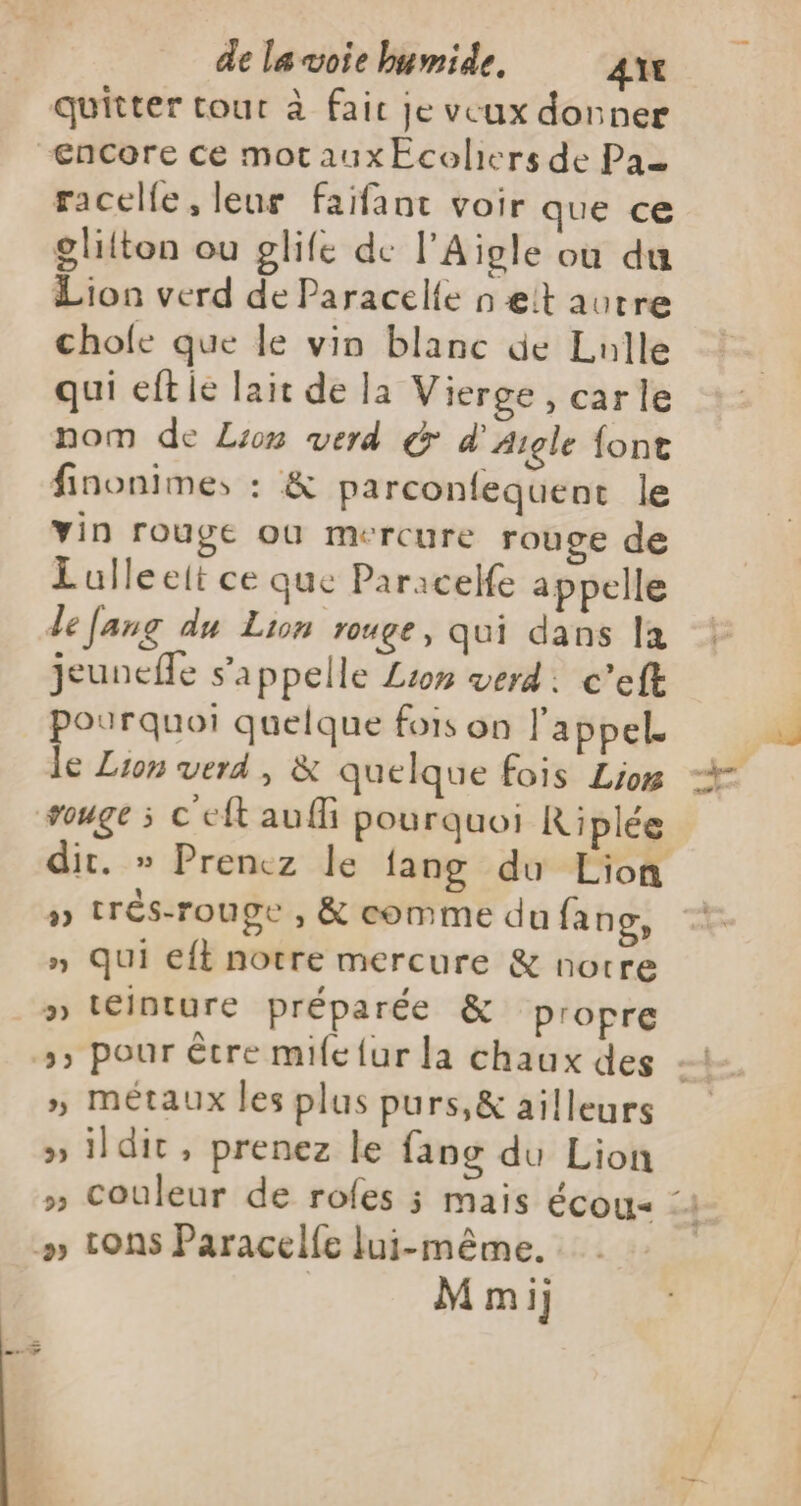 de la voie humide. 411
quitter tout à fait je veux donner
encore ce mot aux Ecoliers de Pa-
racelſe, leur faiſant voir que ce
gliſton ou gliſe de l'Aigle ou du
Lion verd de Paracelſe n eſt autre
choſe que le vin blanc de Lulle
qui eſt le lait de la Vierge, car le
nom de Lion verd & d'Aigle ſont
ſinonimes : & parconſequent le
vin rouge ou mercure rouge de
Lulle eſt ce que Paracelſe appelle
le ſang du Lion rouge, qui dans la
jeuneſſe s'appelle Lion verd : c'eſt
pourquoi quelque fois on l'appel-
le Lion verd, & quelque fois Lion
rouge ; c'eſt auſſi pourquoi Riplée
dit. » Prenez le ſang du Lion
„ trés-rouge, & comme du ſang,
„ qui eſt notre mercure & notre
„ teinture préparée & propre
„ pour être miſe ſur la chaux des
„ métaux les plus purs, & ailleurs
„ il dit, prenez le ſang du Lion
„ couleur de roſes ; mais écou-
„ tons Paracelſe lui-même.
M m ij